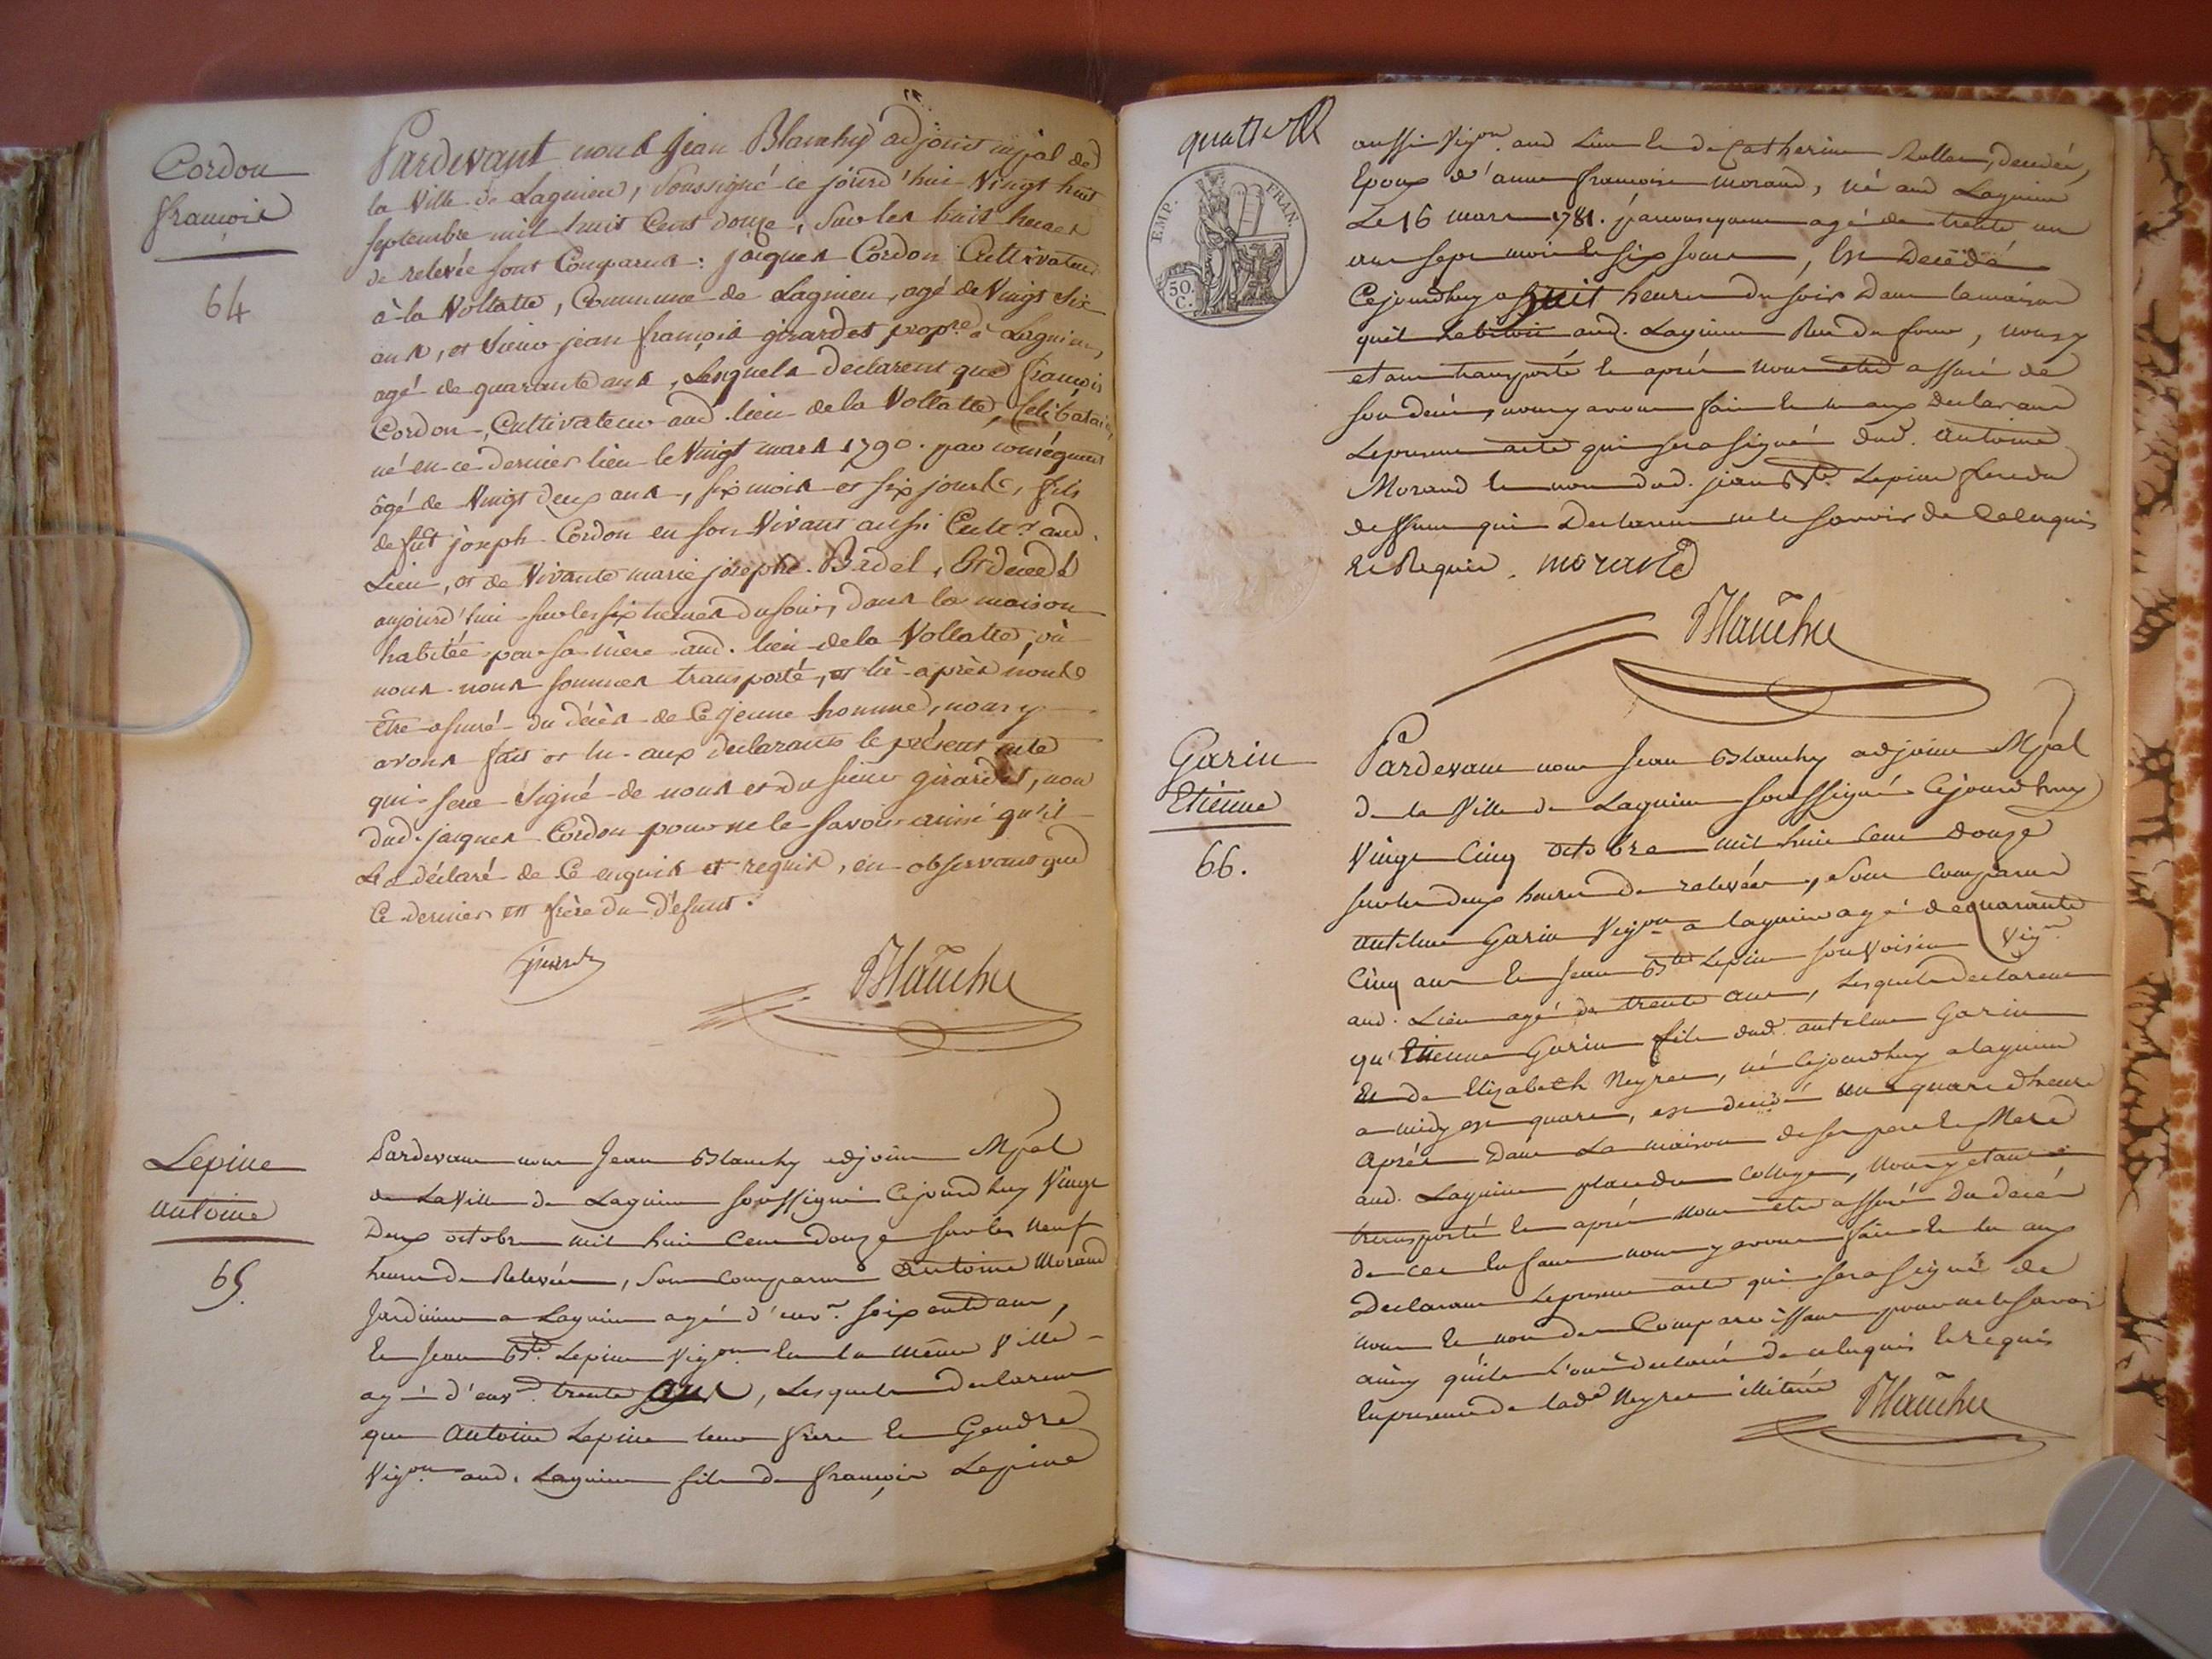 Cordon
françois
64
Pardevant nous Jean Blanchy adjoint mpal de
la Ville de Lagnieu, soussigné ce jourd'hui Vingt huit
septembre mil huit Cent douze, sur les huit heures
de relevée sont Comparus : jacques Cordon Cultivateur
à la Vollatte, Commune de Lagnieu, agé de Vingt six
ans, et sieur jean françois girardet propre à Lagnieu,
agé de quarante ans, Lesquels declarent que françois
Cordon, Cultivateur aud. lieu de la Vollatte, Celibataire,
né en ce dernier lieu le Vingt mars 1790. par conséquent
âgé de Vingt deux ans, six mois et six jours, fils
de fût joseph Cordon en son Vivant aussi Cultr. aud.
Lieu, et de Vivante marie josephe Bidel, Est decedé
aujourd'hui sur les six heures du soir, dans la maison
habitée par sa mère aud. lieu de la Vollatte, où
nous nous sommes transporté, et là après nous
être assuré du décès de Ce jeune homme, nous y
avons fait et lu aux declarants le présent acte
qui sera signé de nous et du sieur girardet, non
dud. jacques Cordon pour ne le savoir ainsi qu'il
L'a déclaré de Ce enquis et requis, en observant que
Ce dernier est frère du défunt.
Blanchy
Lepine
antoine
65.
Pardevant nous Jean Blanchy adjoint Mpal
de La Ville de Lagnieu soussigné Cejourdhuy Vingt
Deux octobre mil huit Cent douze sur les neuf
heures de Relevée, sont comparus Antoine Morand
Jardinier a Lagnieu agé d'envn. soixante ans,
Et Jean Bte. Lepine Vigon. En la même Ville
agé d'envn. trente ans, Lesquels declarent
que Antoine Lepine leur frère Et Gendre
Vigon. aud. Lagnieu fils de françois Lepine
quatre
EMP. FRAN.
50. C.
aussi Vigon. aud Lieu Et de Catherine Rollet, decedée,
Epoux d'anne françoise Morand, né aud Lagnieu
Le 16 mars 1781. par consequent agé de trente un
ans sept mois Et six jours, Est Decédé
Cejourdhuy a huit heures du soir Dans la maison
quil habitoit aud. Lagnieu Rue du four, nous y
etant transporté Et après nous etre assuré de
son decès, nous y avons fait Et lu aux Declarans
Le present acte qui sera signé dud. Antoine
Morand Et non dud. jean Bte. Lepine frere du
deffunt qui Declarent ne le savoir de Ce enquis
Et Requis. morand
Blanchy
Garin
Etienne
66.
Pardevant nous Jean Blanchy adjoint Mpal
de la Ville de Lagnieu soussigné Cejourdhuy
Vingt Cinq octobre mil huit Cent douze
sur les deux heures de relevée, sont comparus
Antelme Garin Vigon a lagnieu agé de quarante
Cinq ans Et Jean Bte Lepine son Voisin Vign.
aud. Lieu agé de trente ans, Lesquels declarent
qu'Etienne Garin fils dud. antelme Garin
Et de Elizabeth Neyret, né Cejourdhuy a lagnieu
a midy et quart, est decedé un quart d'heure
après Dans La maison de ses pere Et Mere
aud. Lagnieu place du College, nous y etant
transporté Et après nous etre assuré Du decés
de cet Enfant nous y avons fait Et lu aux
Declarans Le present acte qui sera signé de
nous Et non des Comparoissans pour ne le savoir
ainsy qu'ils L'ont declaré de ce enquis Et requis
En presence de lade Neyret illiterée
Blanchy